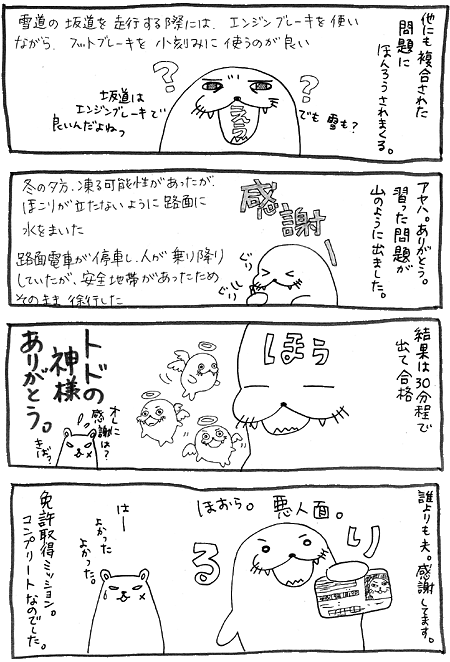 他にも複合された
問題に
ほんろうされまくる。
雪道の坂道を走行する際には、エンジンブレーキを使い
ながら、フットブレーキを小刻みに使うのが良い
?
?
坂道は
エンジンブレーキで
良いんだよねっ
でも雪も?
アヤハ。ありがとう。
習った問題が
山のように出ました。
冬の夕方、凍る可能性があったが、
ほこりが立たないように路面に
水をまいた
路面電車が停車し、人が乗り降り
していたが、安全地帯があったため
そのまま徐行した
感謝ー
ぐりぐり
結果は30分程で
出て合格
ほぅ
トドの
神様
ありがとう。
オレに
感謝は?
きば?
誰よりも夫。感謝してます。
ほおら。悪人面。
り
る
はー
よかった
よかった。
免許取得ミッション。
コンプリートなのでした。